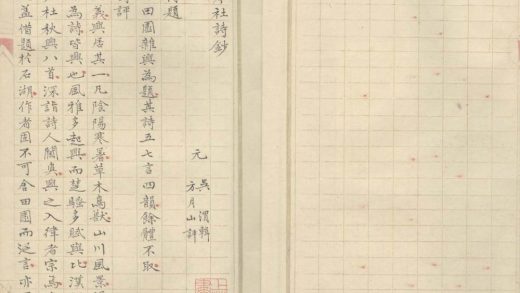 社詩鈔
元 吳 渭輯
方月山評
題
田園雜興為題其詩五七言四韻餘體不取
評
義興居其一凡陰陽寒暑草木鳥獸山川風景
為詩皆興也風雅多起興而楚騷多賦與比漢
杜秋興八首深詣詩人閫奧興之入律者宗焉
蓋借題於石湖作者固不可舍田園而泛言亦